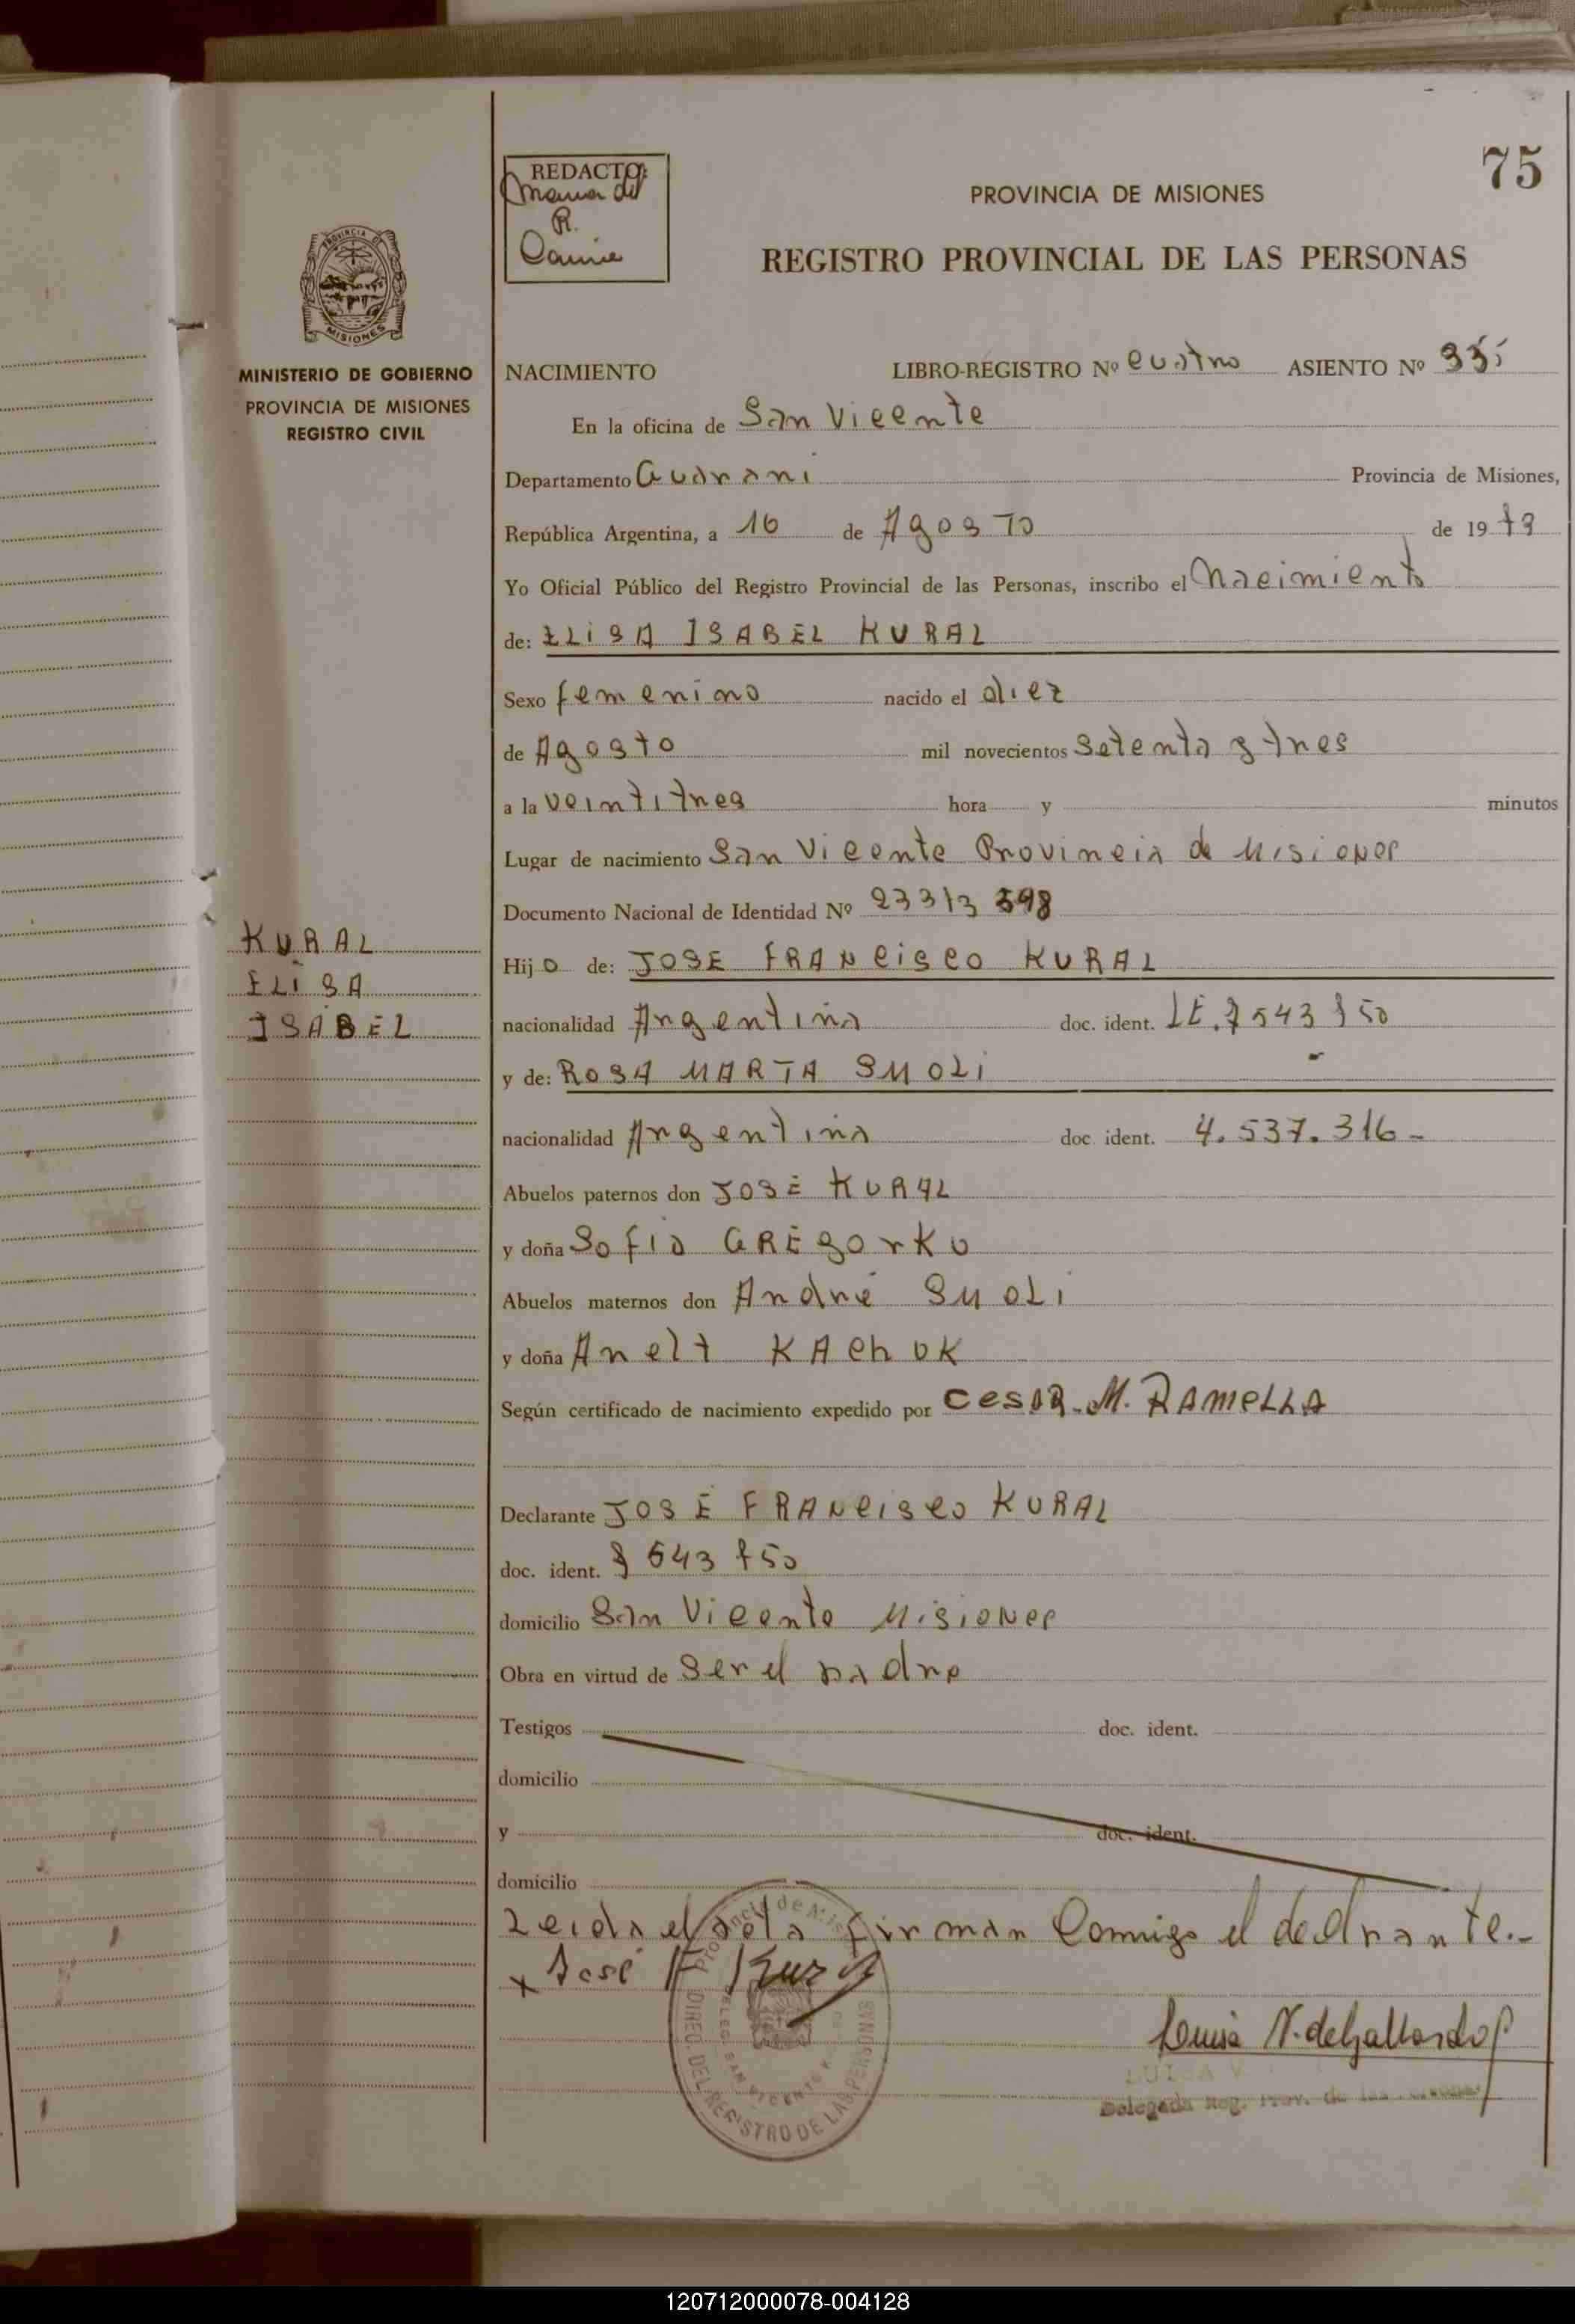 75
REDACTO:
Maria del
R.
PROVINCIA DE MISIONES
REGISTRO PROVINCIAL DE LAS PERSONAS
PROVINCIA DE
MISIONES
MINISTERIO DE GOBIERNO
PROVINCIA DE MISIONES
REGISTRO CIVIL
NACIMIENTO LIBRO-REGISTRO Nº cuatro ASIENTO Nº
En la oficina de San Vicente
Departamento Guarani Provincia de Misiones,
República Argentina, a 16 de Agosto de 1973
Yo Oficial Público del Registro Provincial de las Personas, inscribo el Nacimiento
de: ELISA ISABEL KURAL
Sexo femenino nacido el diez
de Agosto mil novecientos setenta y tres
a la veintitres hora y minutos
Lugar de nacimiento San Vicente Provincia de Misiones
Documento Nacional de Identidad Nº 23313 598
KURAL
ELISA
ISABEL
Hijo de: JOSE FRANCISCO KURAL
nacionalidad Argentina doc. ident. LE. 7543750
y de: ROSA MARTA SMOLi
nacionalidad Argentina doc ident. 4.537.316-
Abuelos paternos don JOSE KURAL
y doña Sofia GREgorKu
Abuelos maternos don André SMOLi
y doña Anelt KAchuK
Según certificado de nacimiento expedido por CesAR-M. RAMeLLA
Declarante JOSE FRANCISCO KURAL
doc. ident. 7 543 750
domicilio San Vicente Misiones
Obra en virtud de Ser el padre
Testigos doc. ident.
domicilio
y doc. ident.
domicilio
Leida el acta firman Conmigo el declarante.-
x José F Kural
Luisa V. de Gallardo
LUISA V
Delegada Reg. Prov. de las Personas
Provincia de Mis
DIREC. DEL REGISTRO DE LAS PERSONAS
DELEG. SAN VICENTE
120712000078-004128